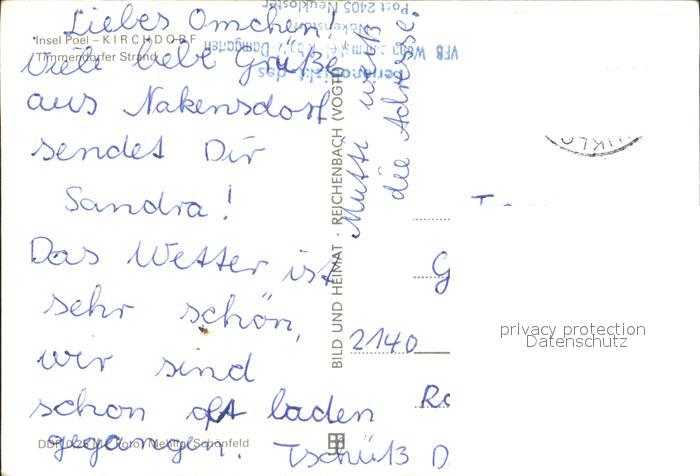 Liebes Omchen!
Insel Poel – KIRCHDORF
Timmendorfer Strand
Viele liebe Grüße
aus Nakensdorf
sendet Dir
Sandra!
Das Wetter ist
sehr schön,
wir sind
schon oft baden
gegangen. Tschüß
Mutti weiß
die Adresse.
BILD UND HEIMAT · REICHENBACH (VOGTL)
Post 2405 Neukloster
Nakensdorf
2140
Foto: Mehlig, Schönfeld
privacy protection
Datenschutz